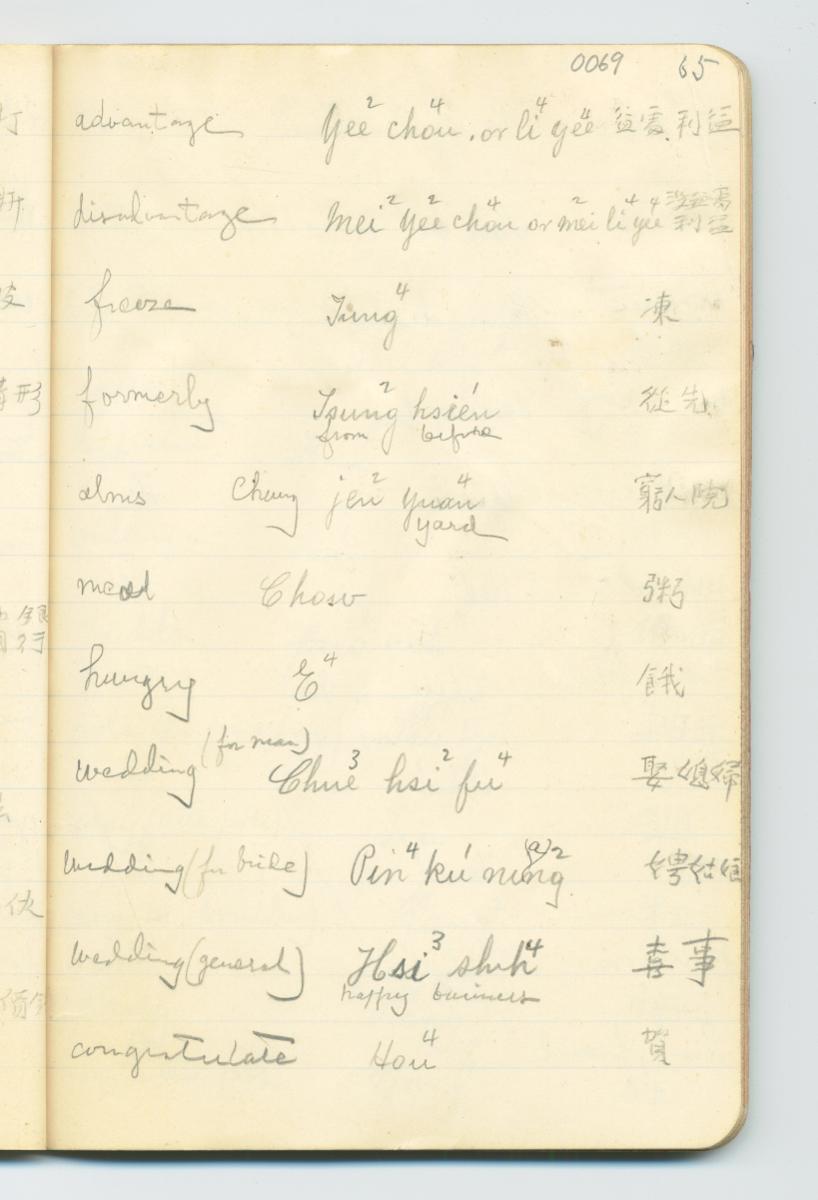 0069 65
advantage Yee² choú⁴, or li⁴ yeé⁴ 益處, 利益
disadvantage Mei² Yee² choú⁴ or mei² li⁴ yee⁴ 沒益處
利益
freeze Tung⁴ 凍
formerly Tsung² hsién 從先
from before
alms Chung jen² yuan⁴ 窮人院
yard
meal Chow 粥
hungry E⁴ 餓
wedding (for man) Chue³ hsi² fu⁴ 娶媳婦
wedding (for bride) Pin⁴ kú niung(a)² 娉姑娘
wedding (general) Hsi³ shih⁴ 喜事
happy business
congratulate Hou⁴ 賀
打
形
銀
行
伙
價